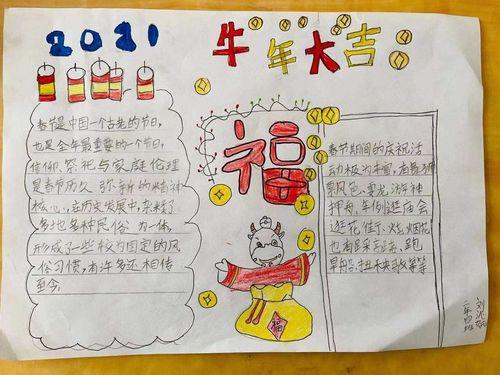 2021
牛年大吉
春节是中国一个古老的节日,
也是全年最重要的一个节日,
信仰、祭祀与家庭伦理
是春节历久弥新的精神
核心,在历史发展中,杂糅了
多地多种民俗为一体,
形成了一些较为固定的风
俗习惯,有许多还相传
至今。
福
福
春节期间的庆祝活
动极为丰富,有舞狮
飘色、耍龙、游神
押舟、年例逛庙会
逛花街、烧烟花
也有踩高跷、跑
旱船、扭秧歌等等
二年四班
刘沉